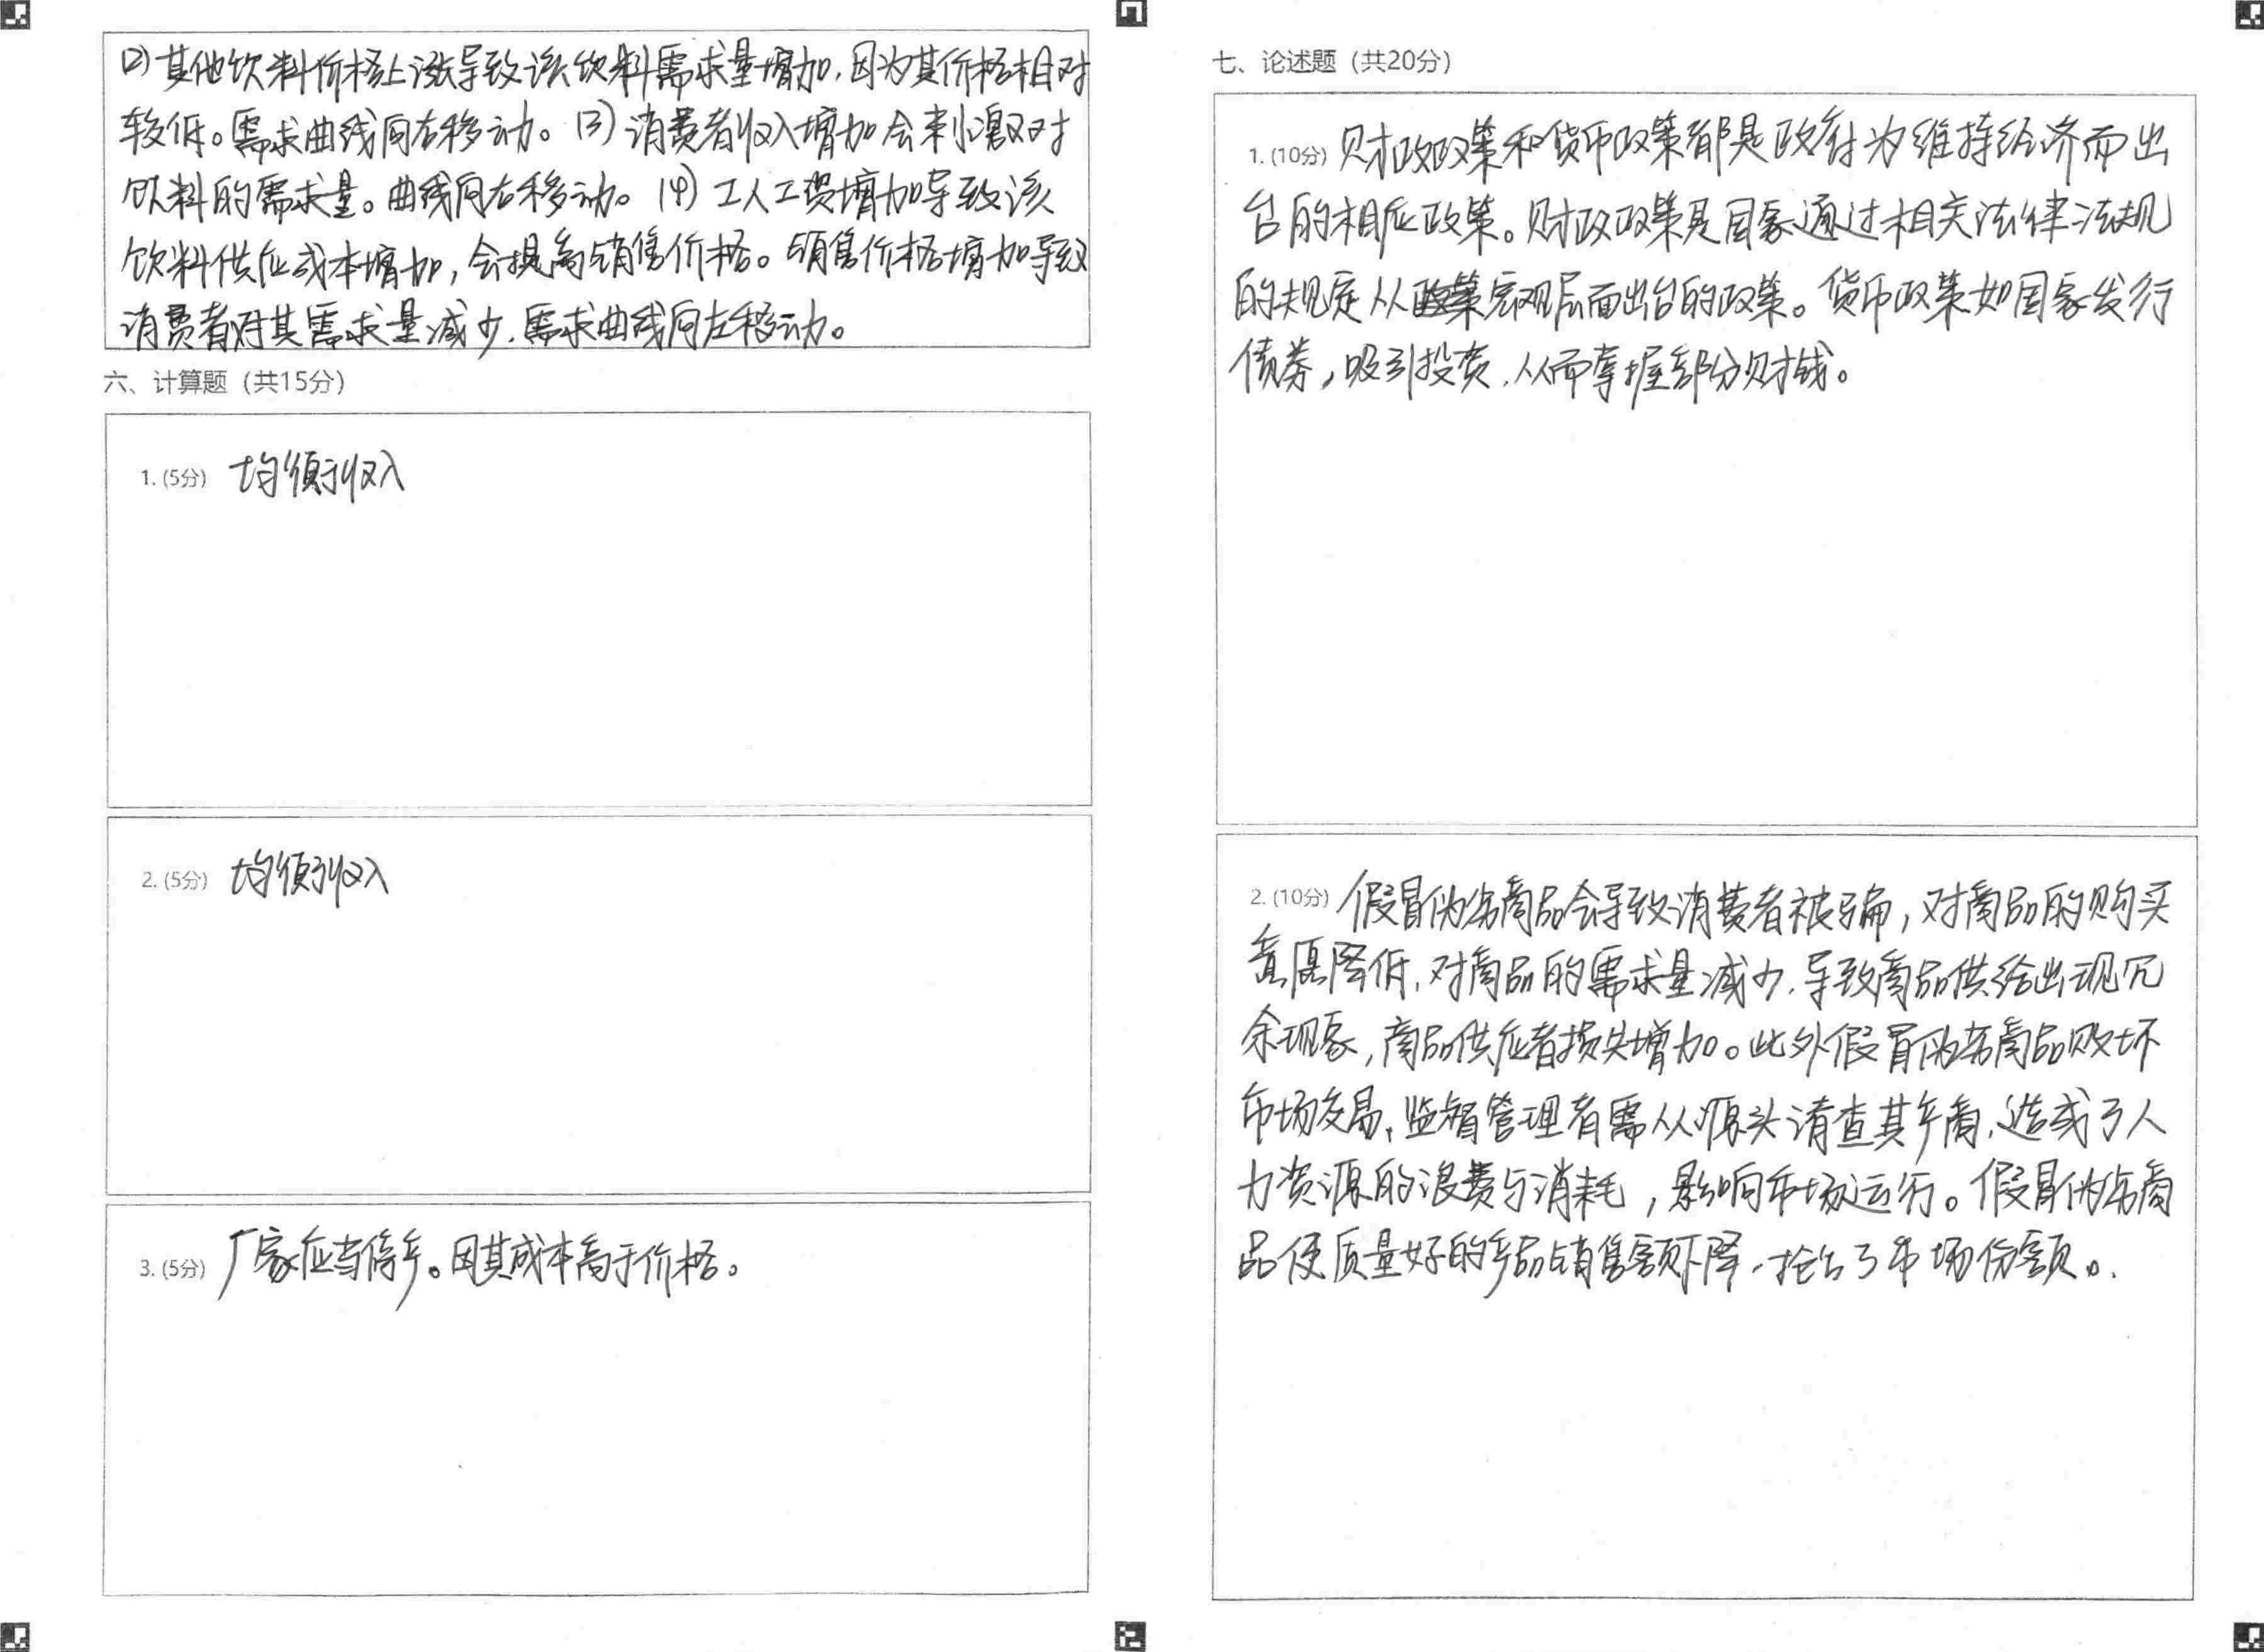 (2) 其他饮料价格上涨导致该饮料需求量增加,因为其价格相对
较低。需求曲线向右移动。(3) 消费者收入增加会刺激对
饮料的需求量。曲线向右移动。(4) 工人工资增加导致该
饮料供应成本增加,会提高销售价格。销售价格增加导致
消费者对其需求量减少,需求曲线向左移动。
六、计算题(共15分)
1. (5分) 均衡收入
2. (5分) 均衡收入
3. (5分) 厂家应当停产。因其成本高于价格。
七、论述题(共20分)
1. (10分) 财政政策和货币政策都是政府为维持经济而出
台的相应政策。财政政策是国家通过相关法律法规
的规定从宏观层面出台的政策。货币政策如国家发行
债券,吸引投资,从而掌握部分财钱。
2. (10分) 假冒伪劣商品会导致消费者被骗,对商品的购买
意愿降低,对商品的需求量减少,导致商品供给出现冗
余现象,商品供应者损失增加。此外假冒伪劣商品败坏
市场交易,监督管理者需从源头清查其产商,造成了人
力资源的浪费与消耗,影响市场运行。假冒伪劣商
品使质量好的产品销售额下降,抢占了市场份额。